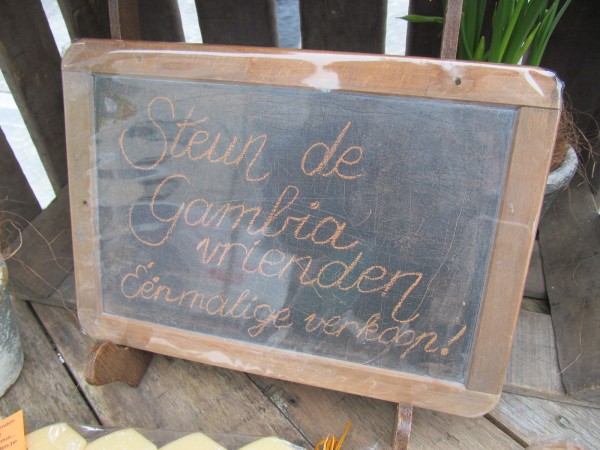 Steun de
Gambia
vrienden
Éénmalige verkoop!